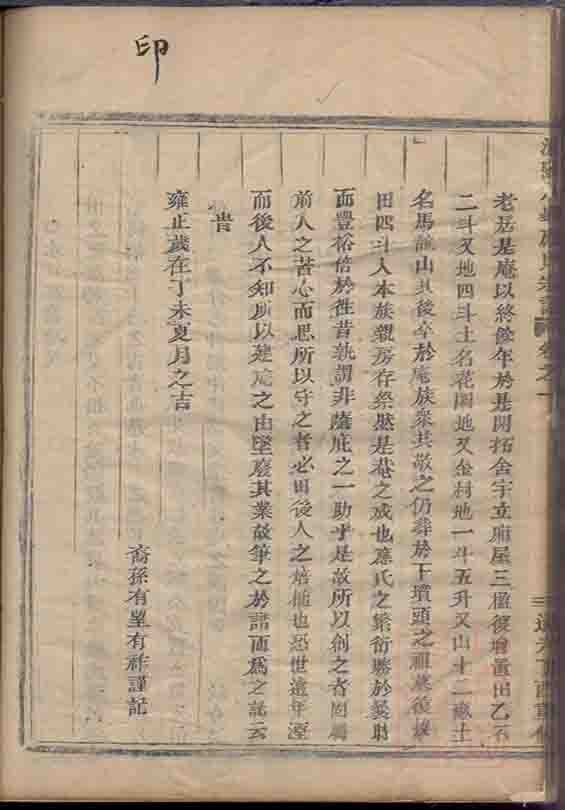 印
卷之一
老居是庵以終餘年於是開拓舍宇立廂屋三楹復增置田乙石
二斗又地四斗土名花園地又金村地一斗五升又山十二畝土
名馬 山其後卒於庵族衆共敬之仍葬於下墳頭之祖塋後 
田四斗入本族親房存祭 是菴之成也應氏之 衍勝於曩時
而豐裕倍於徃昔孰謂非蔭庇之一助乎是故所以創之者固
前人之苦心而思所以守之者必 後人之培植也恐世遠年湮
而後人不知所以建庵之由墜廢其業故筆之於譜而爲之記云
旹
雍正歲在丁未夏月之吉
裔孫有 有 謹記